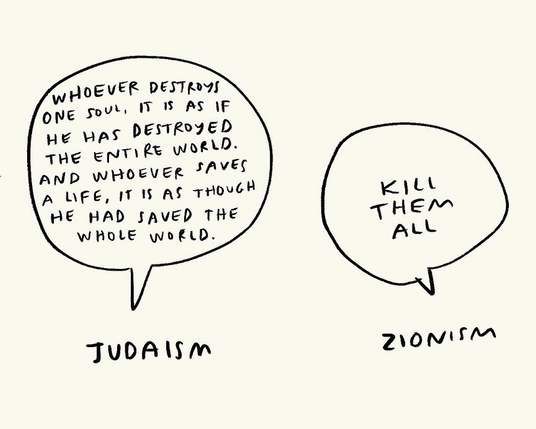 WHOEVER DESTROYS
ONE SOUL, IT IS AS IF
HE HAS DESTROYED
THE ENTIRE WORLD.
AND WHOEVER SAVES
A LIFE, IT IS AS THOUGH
HE HAD SAVED THE
WHOLE WORLD.
JUDAISM
KILL
THEM
ALL
ZIONISM